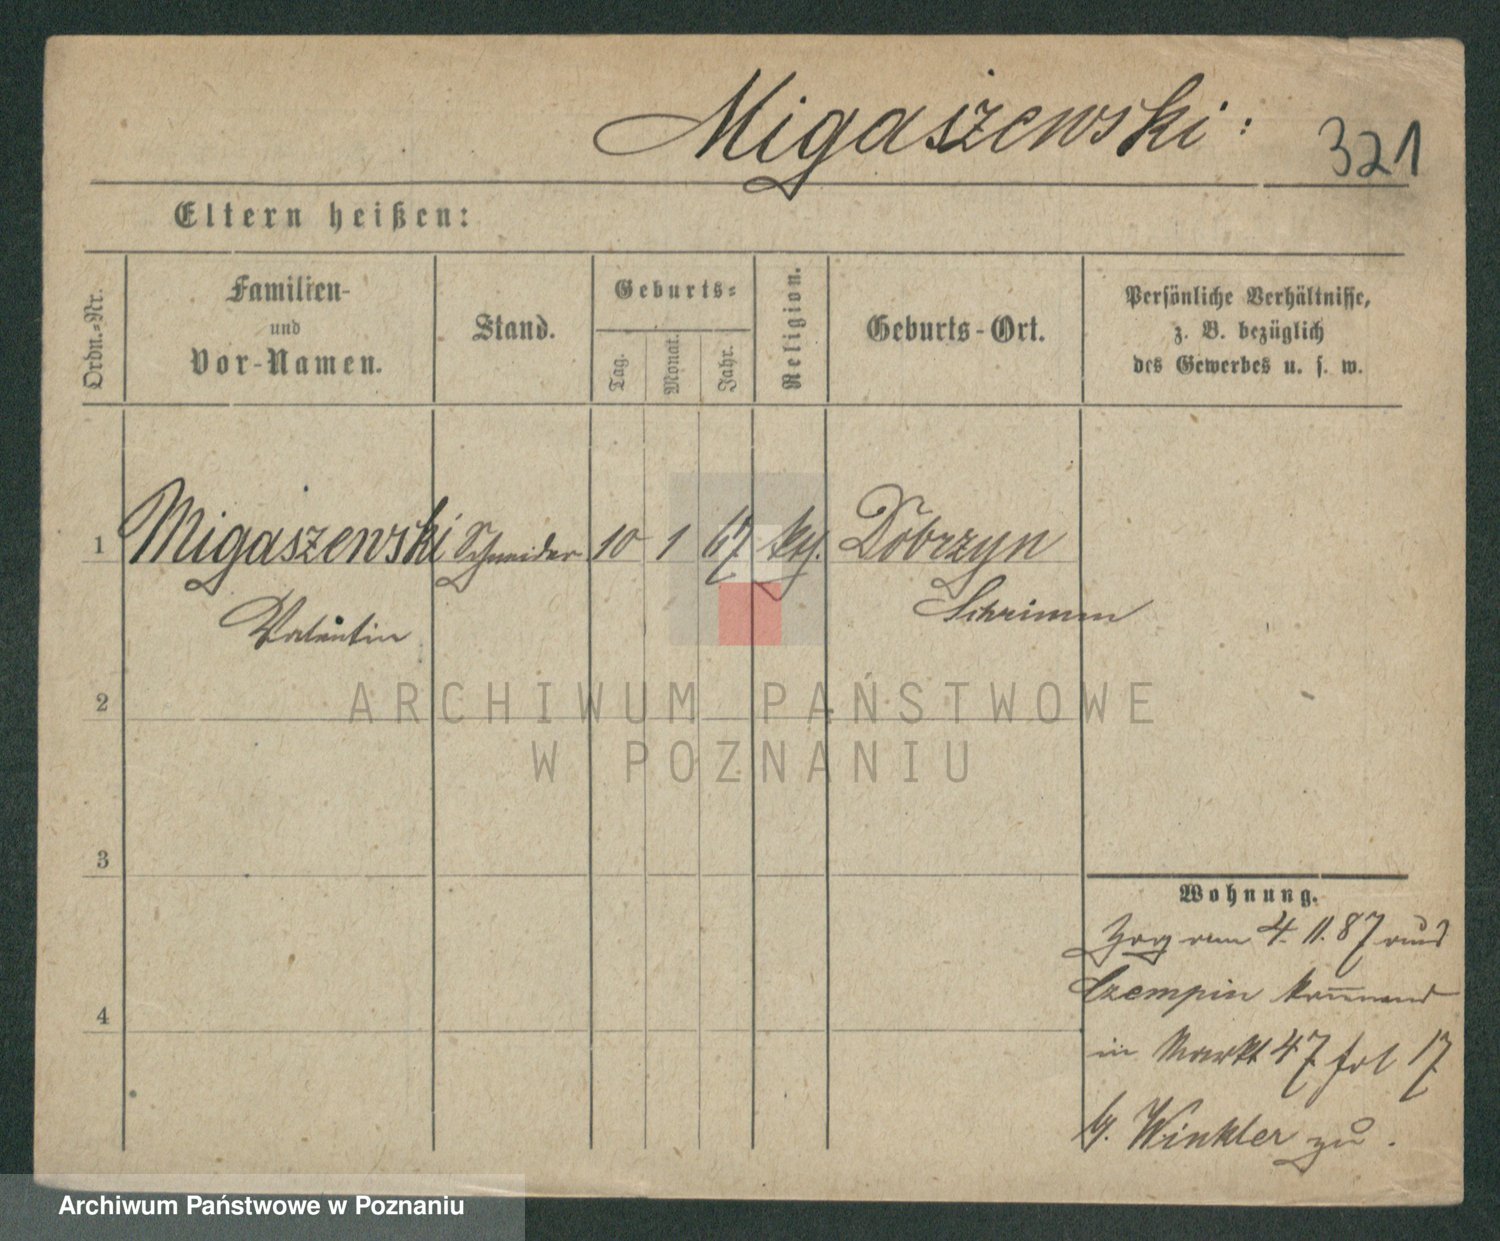 Migaszewski:
321
Eltern heißen:
Ordn.-Nr.
Familien-
und
Vor-Namen.
Stand.
Geburts-
Tag.
Monat.
Jahr.
Religion.
Geburts-Ort.
Persönliche Verhältnisse,
z. B. bezüglich
des Gewerbes u. s. w.
1 Migaszewski Schneider 10 1 67 kth. Dobrzyn
Valentin Schrimm
2
ARCHIWUM PAŃSTWOWE
W POZNANIU
3
Wohnung.
Zog am 4. 11. 87 aus
Czempin kom̅end
4
in Markt 47 fol 17
b. Winkler zu.
Archiwum Państwowe w Poznaniu